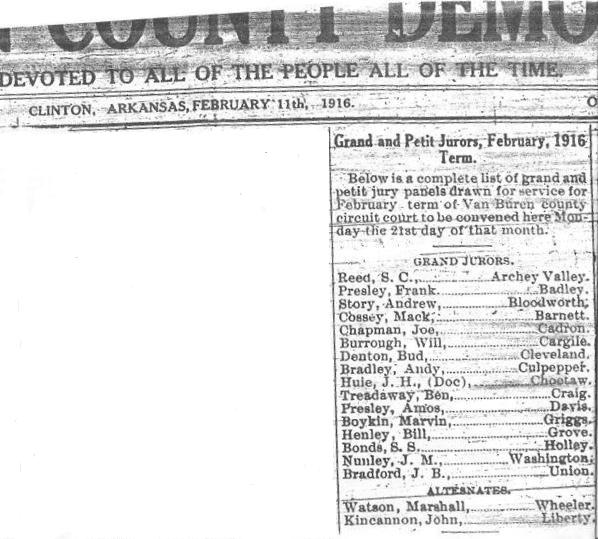 N COUNTY DEMO
DEVOTED TO ALL OF THE PEOPLE ALL OF THE TIME.
CLINTON, ARKANSAS, FEBRUARY 11th, 1916.
Grand and Petit Jurors, February, 1916
Term.
Below is a complete list of grand and
petit jury panels drawn for service for
February term of Van Buren county
circuit court to be convened here Mon-
day the 21st day of that month.
GRAND JURORS.
Reed, S. C., Archey Valley.
Presley, Frank. Badley.
Story, Andrew, Bloodworth.
Cossey, Mack, Barnett.
Chapman, Joe, Cadron.
Burrough, Will, Cargile.
Denton, Bud, Cleveland.
Bradley, Andy, Culpepper.
Huie, J. H., (Doc), Choctaw.
Treadaway, Ben, Craig.
Presley, Amos, Davis.
Boykin, Marvin, Griggs.
Henley, Bill, Grove.
Bonds, S. S. Holley.
Nunley, J. M., Washington.
Bradford, J. B., Union.
ALTERNATES.
Watson, Marshall, Wheeler.
Kincannon, John, Liberty.